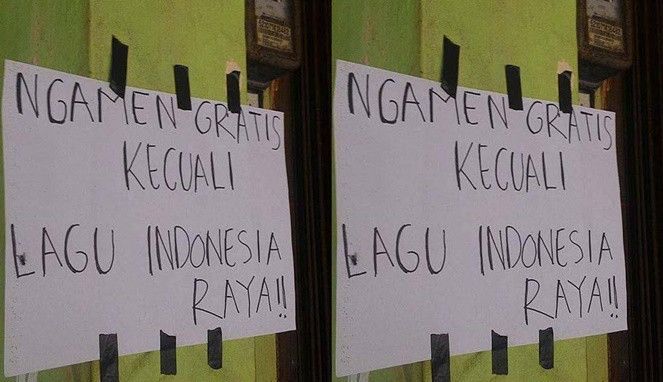 NGAMEN GRATIS
KECUALI
LAGU INDONESIA
RAYA!!
NGAMEN GRATIS
KECUALI
LAGU INDONESIA
RAYA!!